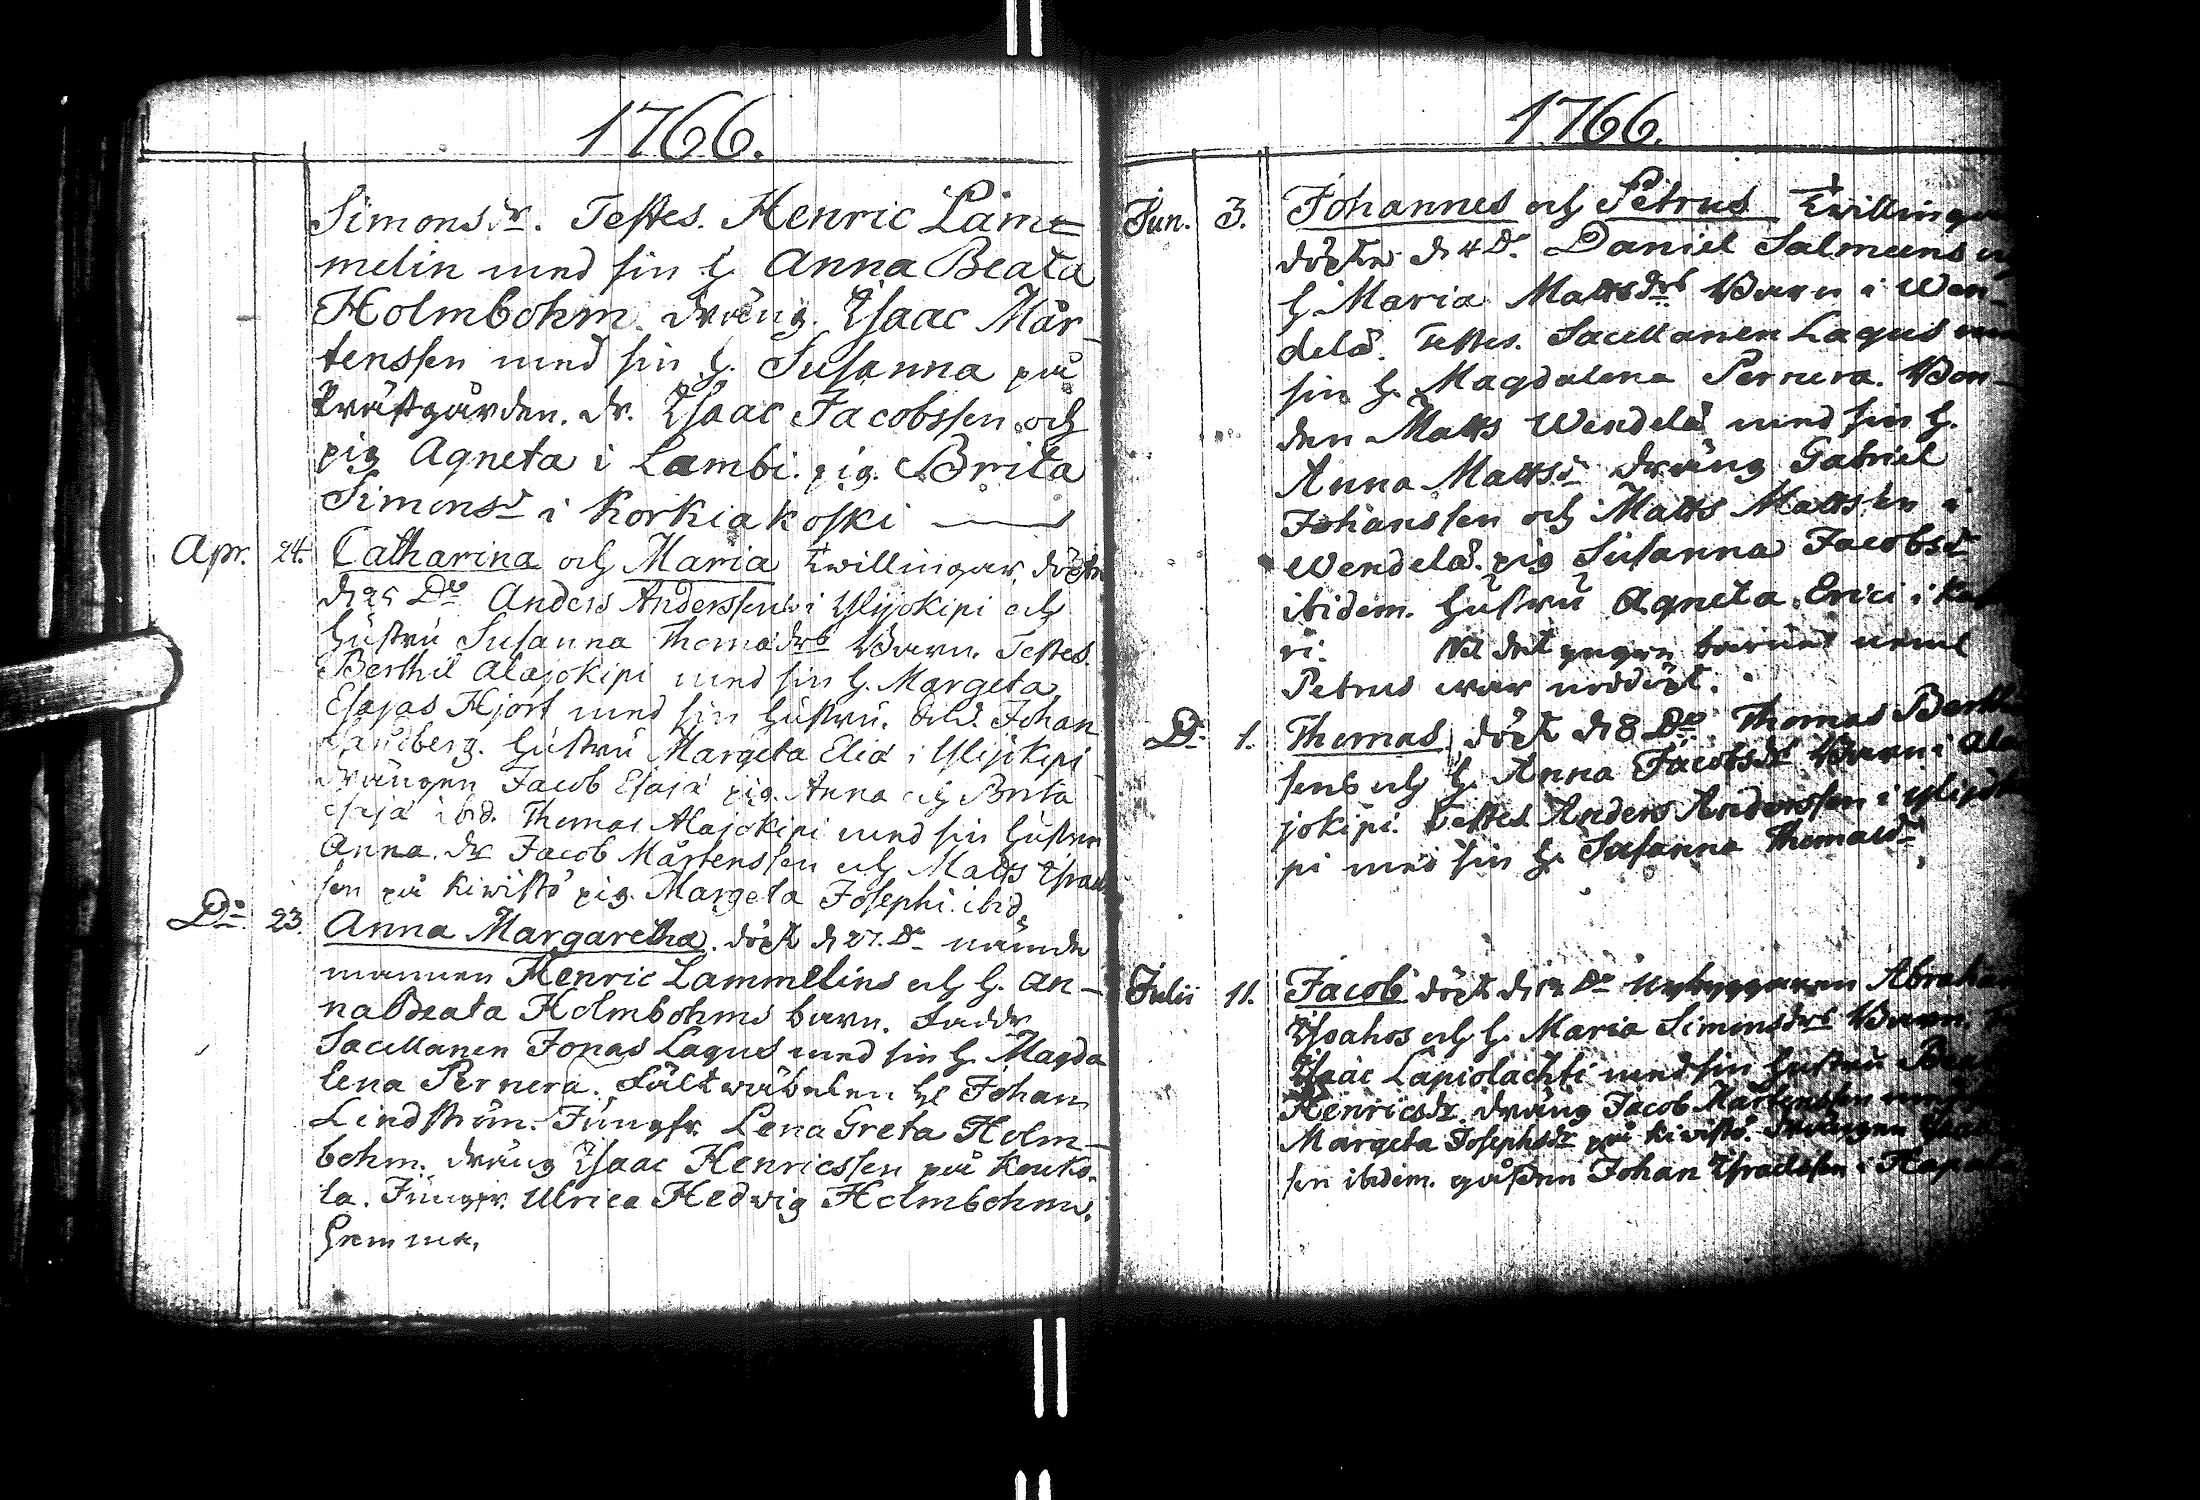 1766.
Simonsdr. Testes. Henric Läm=
melin med sin h. Anna Beata
Holmbohm. dräng. Isaac Mår-
tenssen med sin h. Susanna på
Prästgården. dr. Isaac Jacobssen och
pig Agneta i Lambi. pig. Brita
Simonsd i Korkiakoski
Apr. 24. Catharina och Maria Twillingar, döpte
d 25 Do Anders Anderssens i Ylijokipi och
hustru Susanna Thomædrs Barn. Testes
Berthil Alajokipi med sin h. Margeta,
Esajas Hjort med sin hustru. Johan
Sandberg. hustru Margeta Eliæ i Ylijokipi
drängen Jacob Esajæ pig. Anna och Brita
Esajæ ibid. Thomas Alajokipi med sin hustru
Anna. dr Jacob Mårtenssen och Matts Israels
sen på Kiwistö pig. Margeta Josephi ibid.
Do. 23. Anna Margaretha. döpt d 27. Do nämnde
mannen Henric Lammelins och h. An-
na Beata Holmbohms barn. Faddr
Sacellanen Jonas Lagus med sin h. Magda
lena Pernera. Fältwäbelen Johan
Lindström. Jungfr. Lena Greta Holm-
bohm. dräng Isaac Henricssen på Kouko-
la. Jungfr. Ulrica Hedwig Holmbohm.
hemma.
1766.
Jun. 3. Johannes och Petrus Twillingar
döpte d 4 Do. Daniel Salmeens
h. Maria Mattsdrs Barn i Wen-
delä. Testes. Sacellanen Lagus med
sin h. Magdalena Pernera. Bon-
den Matts Wendelä med sin h.
Anna Mattsd dräng Gabriel
Johanssen och Matts Mattssen i
Wendelä. pig Susanna Jacobsd
ibidem. hustru Agneta Erici i
ri. NB det yngre barnet neml
Petrus war nöddöpt.
Do 1. Thomas döpt d 8 Do. Thomas Berthil
sens och h. Anna Jacobsdr Barn i Ala
jokipi. Testes Anders Anderssen i Ylijoki
pi med sin h. Susanna Thomæd
Julii 11. Jacob döpt d 12 Do Nybyggaren Abraham
Isoahos och h. Maria Simonsdrs Barn.
Isaac Lapiolachti med sin hustru
Henricsdr. dräng Jacob Mårtenssen
Margeta Josephsdr på Kiwistö. drängen
sen ibidem. gåssen Johan Israelssen i